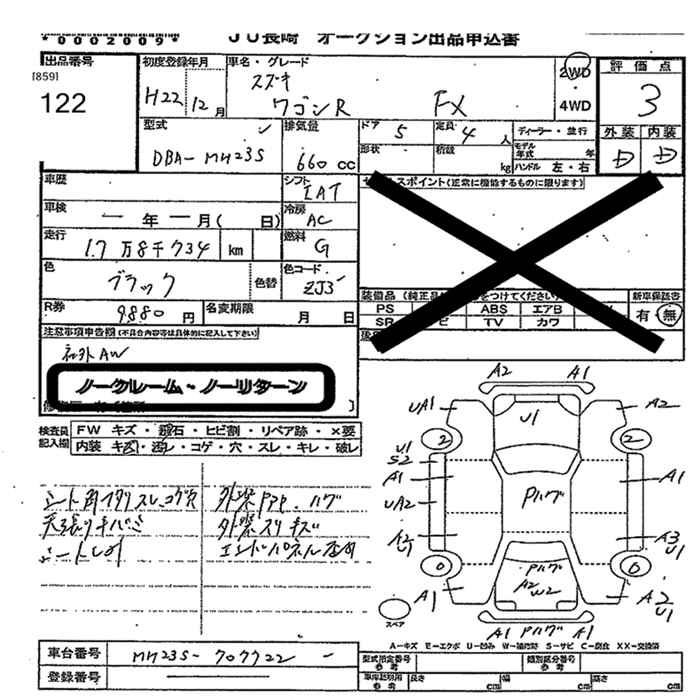 *0002009* JU長崎 オークション出品申込書
出品番号
[859]
122
初度登録年月 H22 12月
車名・グレード
スズキ
ワゴンR FX
2WD
4WD
評価点
3
外装 内装
D D
型式
DBA-MH23S
排気量
660 cc
ドア 5
定員 4人
形状
積載 kg
ディーラー・並行
モデル年式 年
ハンドル 左・右
車歴
シフト IAT
スポイント(正常に機能するものに限ります)
車検 年 月( 日)
冷房 AC
走行 1.7万8千734 km
燃料 G
色 ブラック 色替
色コード ZJ3
装備品 (純正品 をつけてください)
新車保証書
有・無
PS ABS エアB
SR TV カワ
R券 9880円
名変期限 月 日
注意事項申告欄(不具合内容等は具体的に記入して下さい)
社外AW
ノークレーム・ノーリターン
検査員記入欄
FW キズ・飛石・ヒビ割・リペア跡・×要
内装 キズ・汚レ・コゲ・穴・スレ・キレ・破レ
シート内イタリスレ.コゲ穴
天張りキバミ
外装 ハゲ
外装スリキズ
エンドパネル
A2 A1
UA1 U1 A2
2 2
U1
S2
A1 Pハゲ A1
UA2
A2
U1
A3
U1
0 0
Pハゲ
A2
W2
A1 A2
U1
スペア
A1 Pハゲ A1
A-キズ E-エクボ U-凹み W-補修跡 S-サビ C-腐食 XX-交換済
車台番号 MH23S-707722
登録番号
型式指定番号
参考
類別区分番号
参考
車庫証明用
参考
長さ cm
幅 cm
高さ cm